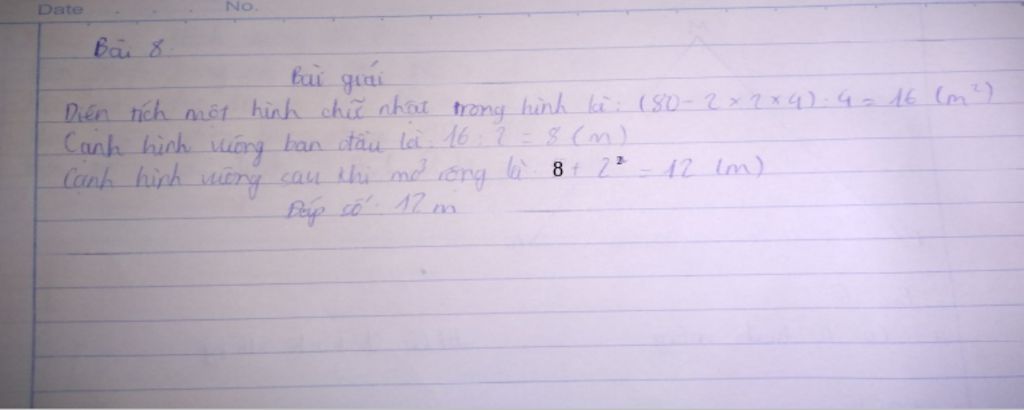 Date . . . No.
Bài 8
Bài giải
Diện tích một hình chữ nhật trong hình là: (80 - 2 x 2 x 4) : 4 = 16 (m²)
Cạnh hình vuông ban đầu là: 16 : 2 = 8 (m)
Cạnh hình vuông sau khi mở rộng là: 8 + 2² = 12 (m)
Đáp số: 12 m